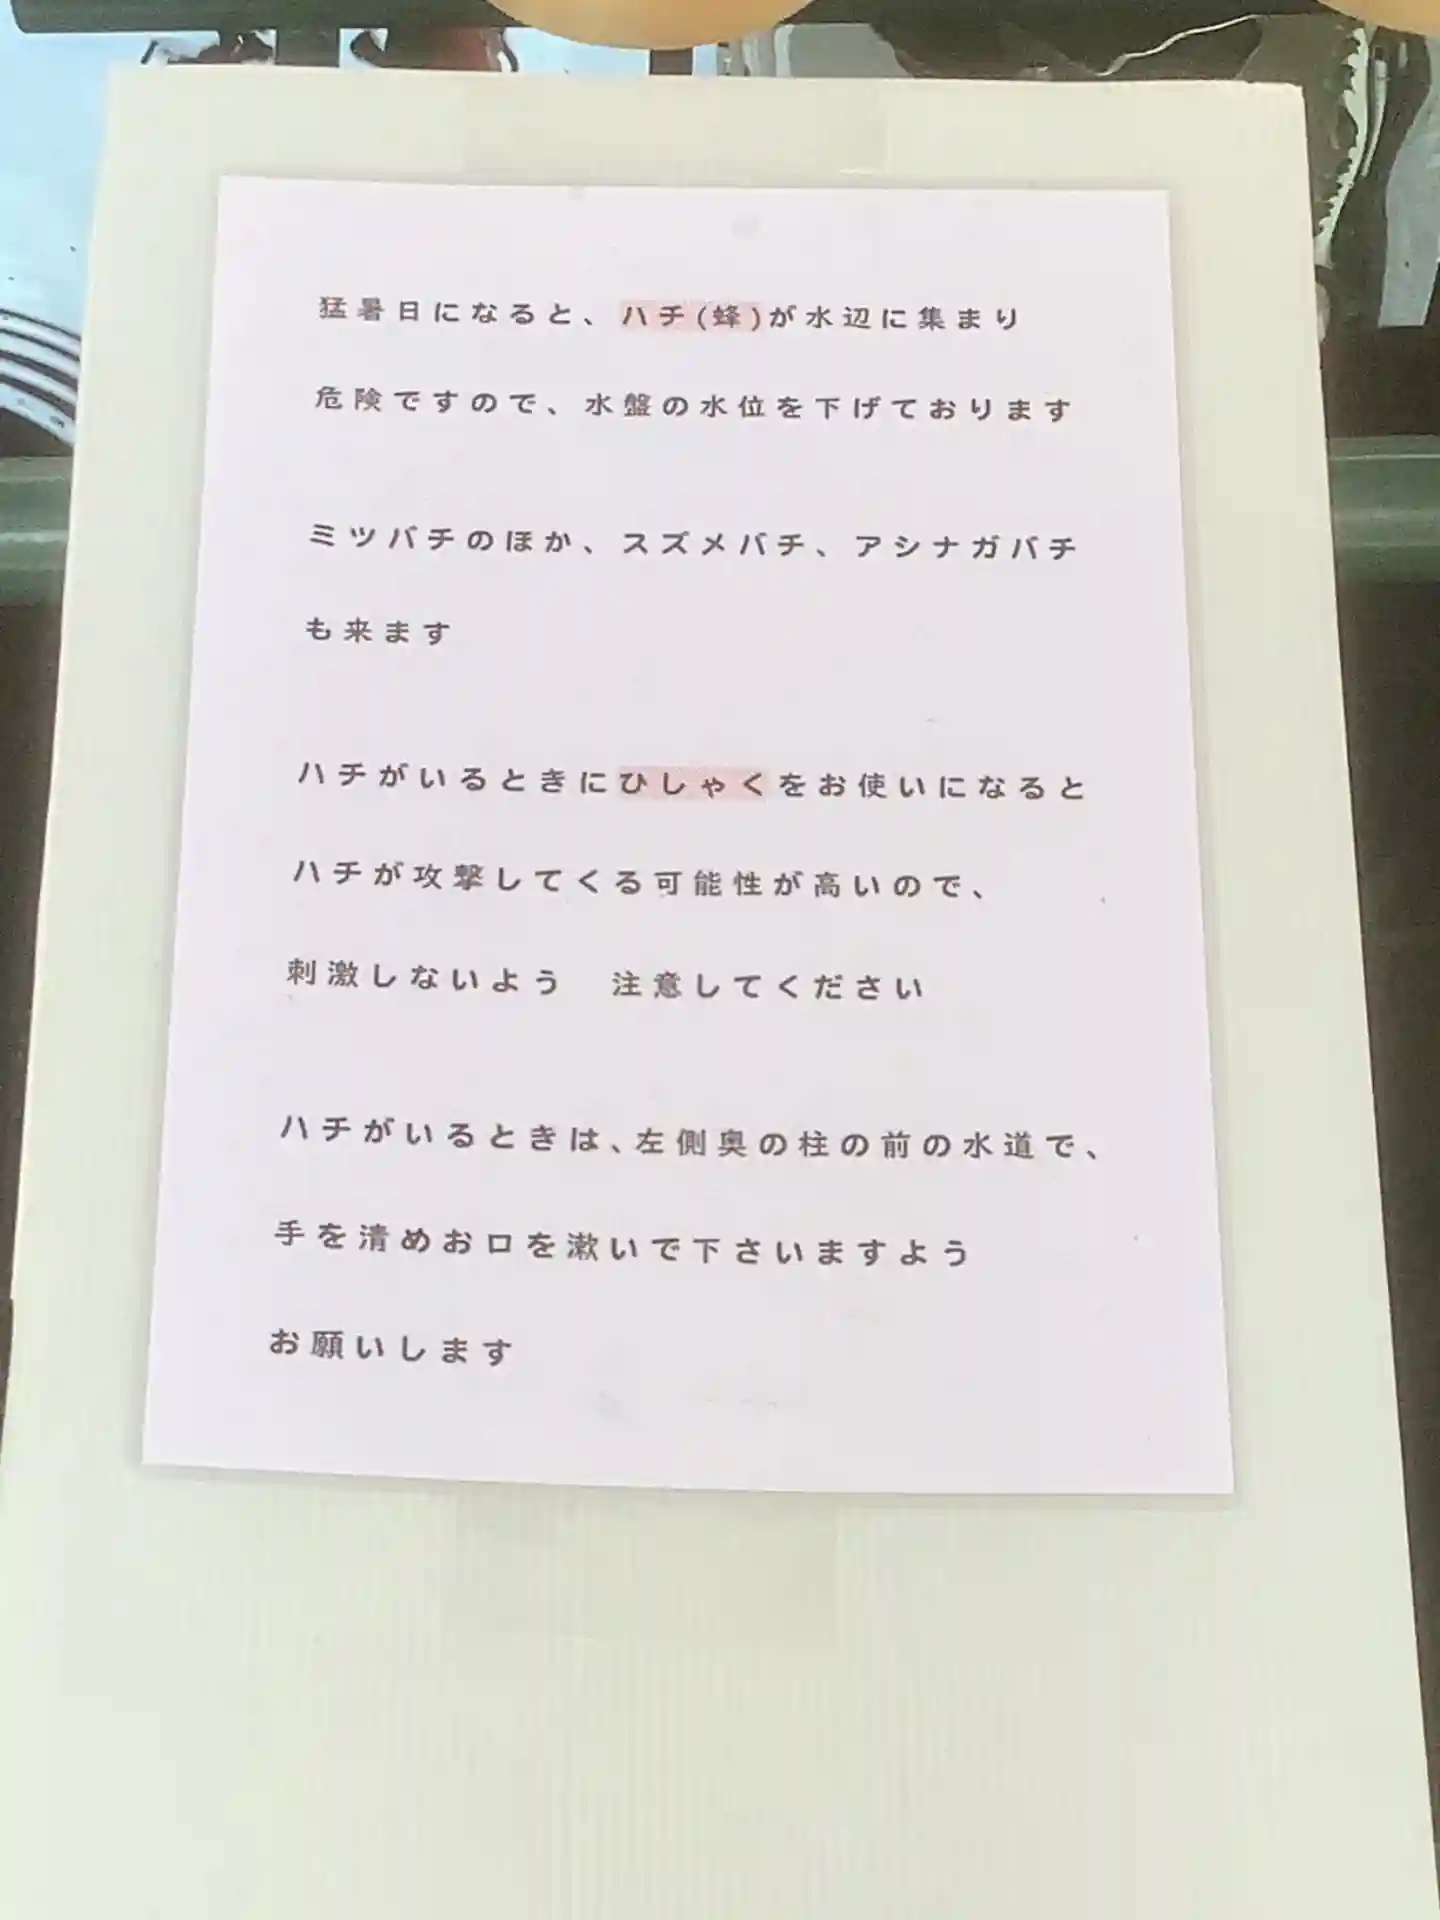 猛暑日になると、ハチ(蜂)が水辺に集まり
危険ですので、水盤の水位を下げております
ミツバチのほか、スズメバチ、アシナガバチ
も来ます
ハチがいるときにひしゃくをお使いになると
ハチが攻撃してくる可能性が高いので、
刺激しないよう　注意してください
ハチがいるときは、左側奥の柱の前の水道で、
手を清めお口を漱いで下さいますよう
お願いします